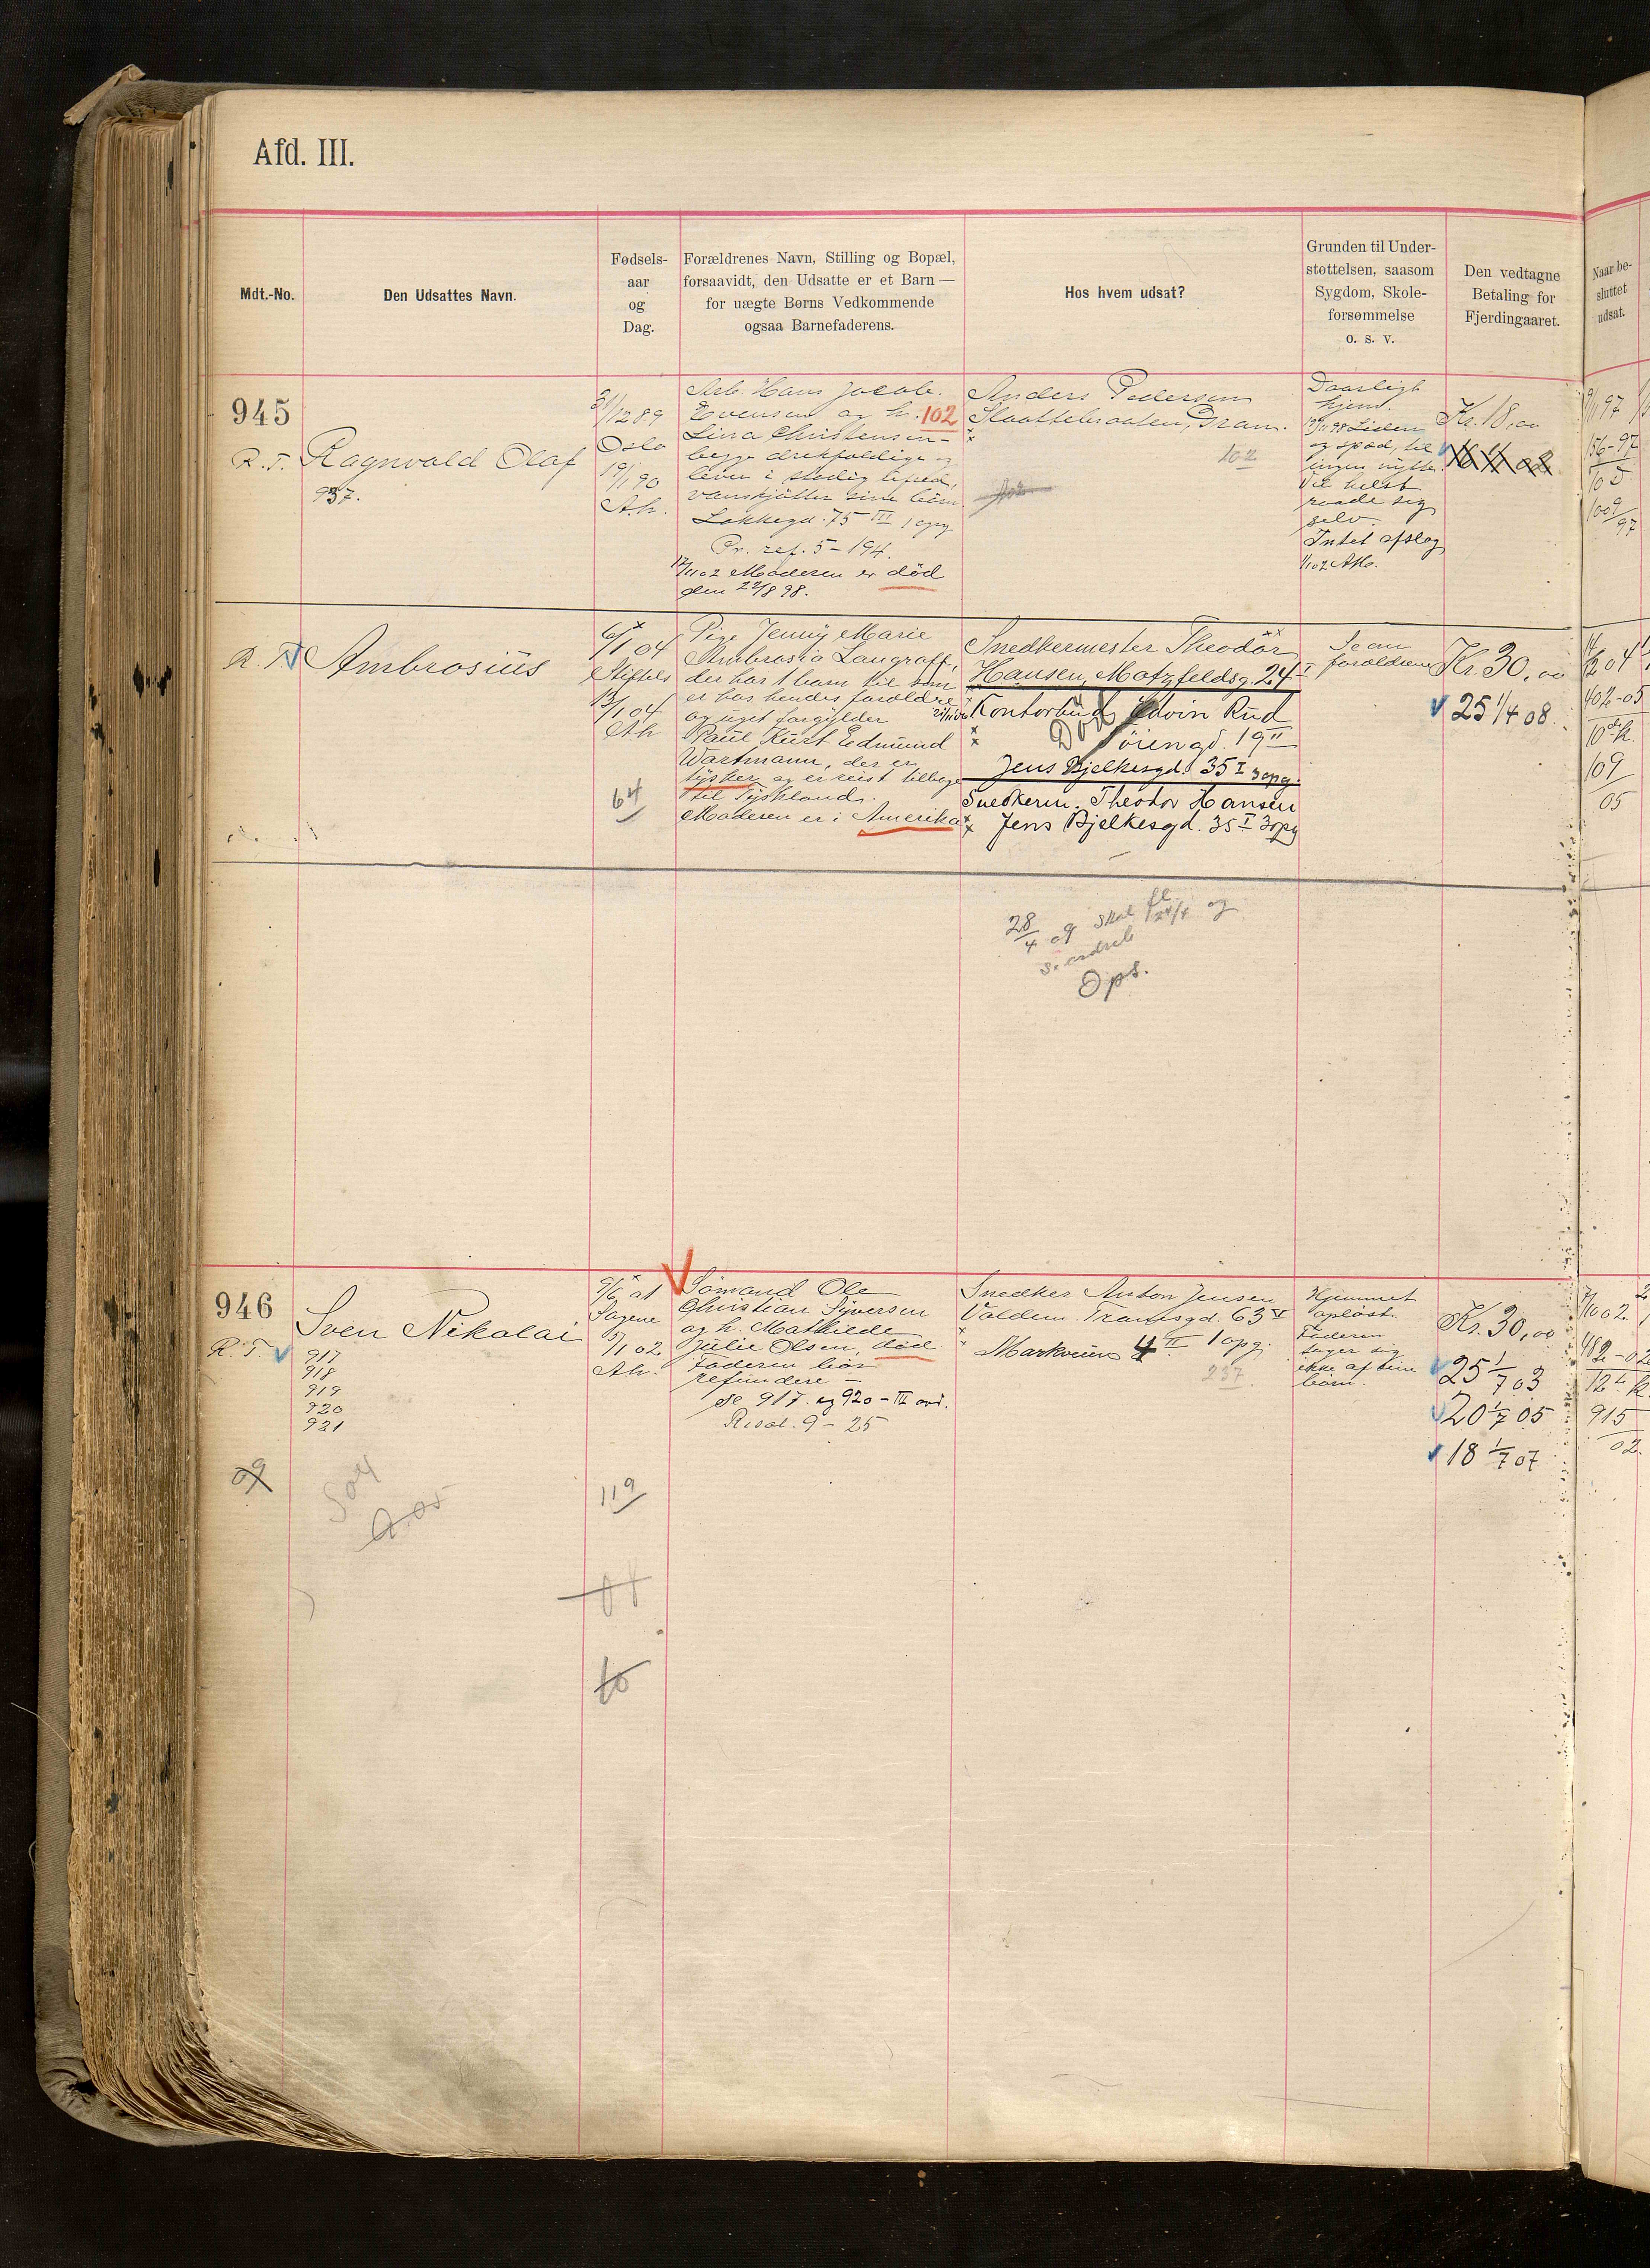 Afd. III.
Mdt.-No.
Den Udsattes Navn.
Fødsels-
aar
og
Dag.
Forældrenes Navn, Stilling og Bopæl,
forsaavidt, den Udsatte er et Barn —
for uægte Børns Vedkommende
ogsaa Barnefaderens.
Hos hvem udsat?
Grunden til Under-
støttelsen, saasom
Sygdom, Skole-
forsømmelse
o. s. v.
Den vedtagne
Betaling for
Fjerdingaaret.
Naar be-
sluttet
udsat.
945
R. T.
Ragnvald Olaf
937.
31/12 89
Oslo
19/1 90
Ah.
Arb. Hans Jacob
Evensen og h. 102
Lina Christensen -
begge drikfældige og
lever i stadig ufred,
vanskjøtter sine børn
Lakkegd. 75 III 1 opg
Pr. ref. 5 - 194.
17/11 02 Moderen er død
den 22/8 98.
Anders Pedersen
Slaattebraaten, Gran.
102
Daarligt
hjem.
Liden
og spæd, til
ingen nytte.
Vil helst
raade sig
selv.
Intet afslag
1/1 02 AM.
Kr. 18,00
9/11 97
156-97
105
1009/97
R. T.
Ambrosius
6/1 04
Stiftels
13/1 04
Ah
64
Pige Jenny Marie
Ambrosia Langraff,
der har 1 barn til som
er hos hendes forældre
og uget. forgylder
Paul Kurt Edmund
Wartmann, der er
tysker og er reist tilbage
til Tyskland.
Moderen er i Amerika
Snedkermester Theodor
Hansen, Motzfeldsg. 24 I
Kontorbud Edvin Rud
Død
Sörengd. 19 II
Jens Bjelkesgd. 35 I 3 opg.
Snedkerm. Theodor Hansen
Jens Bjelkesgd. 35 I 3 opg
Se an
forældrene
Kr. 30,00
25 1/4 08.
402-05
109/05
28/4 09 skal
Ops.
946
R. T.
Sven Nikolai
917
918
919
920
921
09
9/6 01
Sagene
5/1 02
Ah.
119
Sømand Ole
Christian Syversen
og h. Mathilde
Julie Olsen, død
Faderen bør
refundere -
Se 917 og 920 - III avd.
Resol. 9 - 25
Snedker Anton Jensen
Valdem. Tranesgd. 63 V
Markveien 4 II 1 opg.
237.
Hjemmet
opløst.
Faderen
tager sig
ikke af sine
børn.
Kr. 30,00
25 1/7 03
20 1/7 05
18 1/7 07
482-02
915
02.